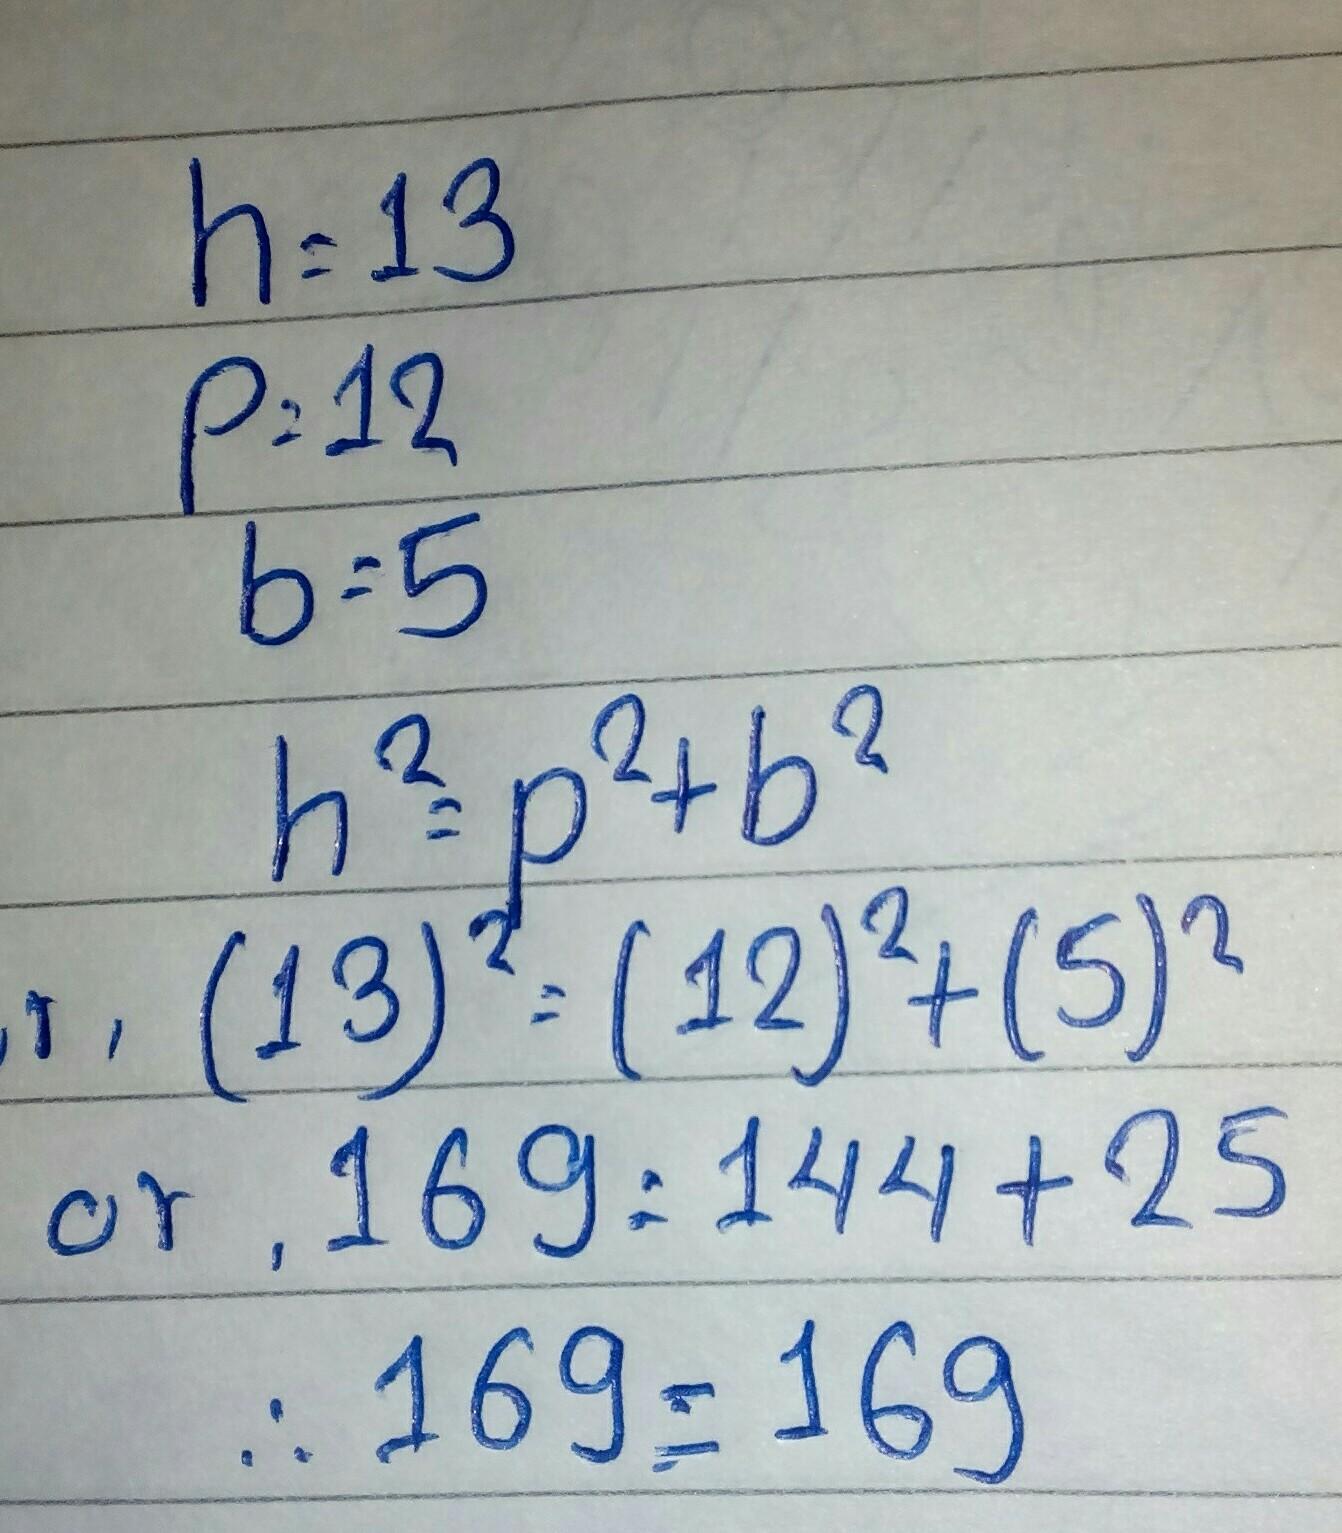 h=13
p=12
b=5
h²=p²+b²
r, (13)²=(12)²+(5)²
or, 169=144+25
∴ 169=169